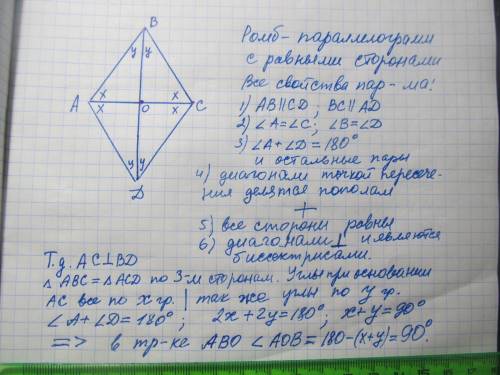 B
y y
A x x C
x O x
y y
D
Ромб - параллелограмм
с равными сторонами
Все свойства пар-ма:
1) AB∥CD; BC∥AD
2) ∠A=∠C; ∠B=∠D
3) ∠A+∠D=180°
и остальные пары
4) диагонали точкой пересече-
ния делятся пополам
+
5) все стороны равны
6) диагонали ⊥ и являются
биссектрисами.
Т.д. AC⊥BD
△ABC=△ACD по 3-м сторонам. Углы при основании
AC все по x гр. | так же углы по y гр.
∠A+∠D=180°; 2x+2y=180°; x+y=90°
=> в тр-ке ABO ∠AOB=180-(x+y)=90°.